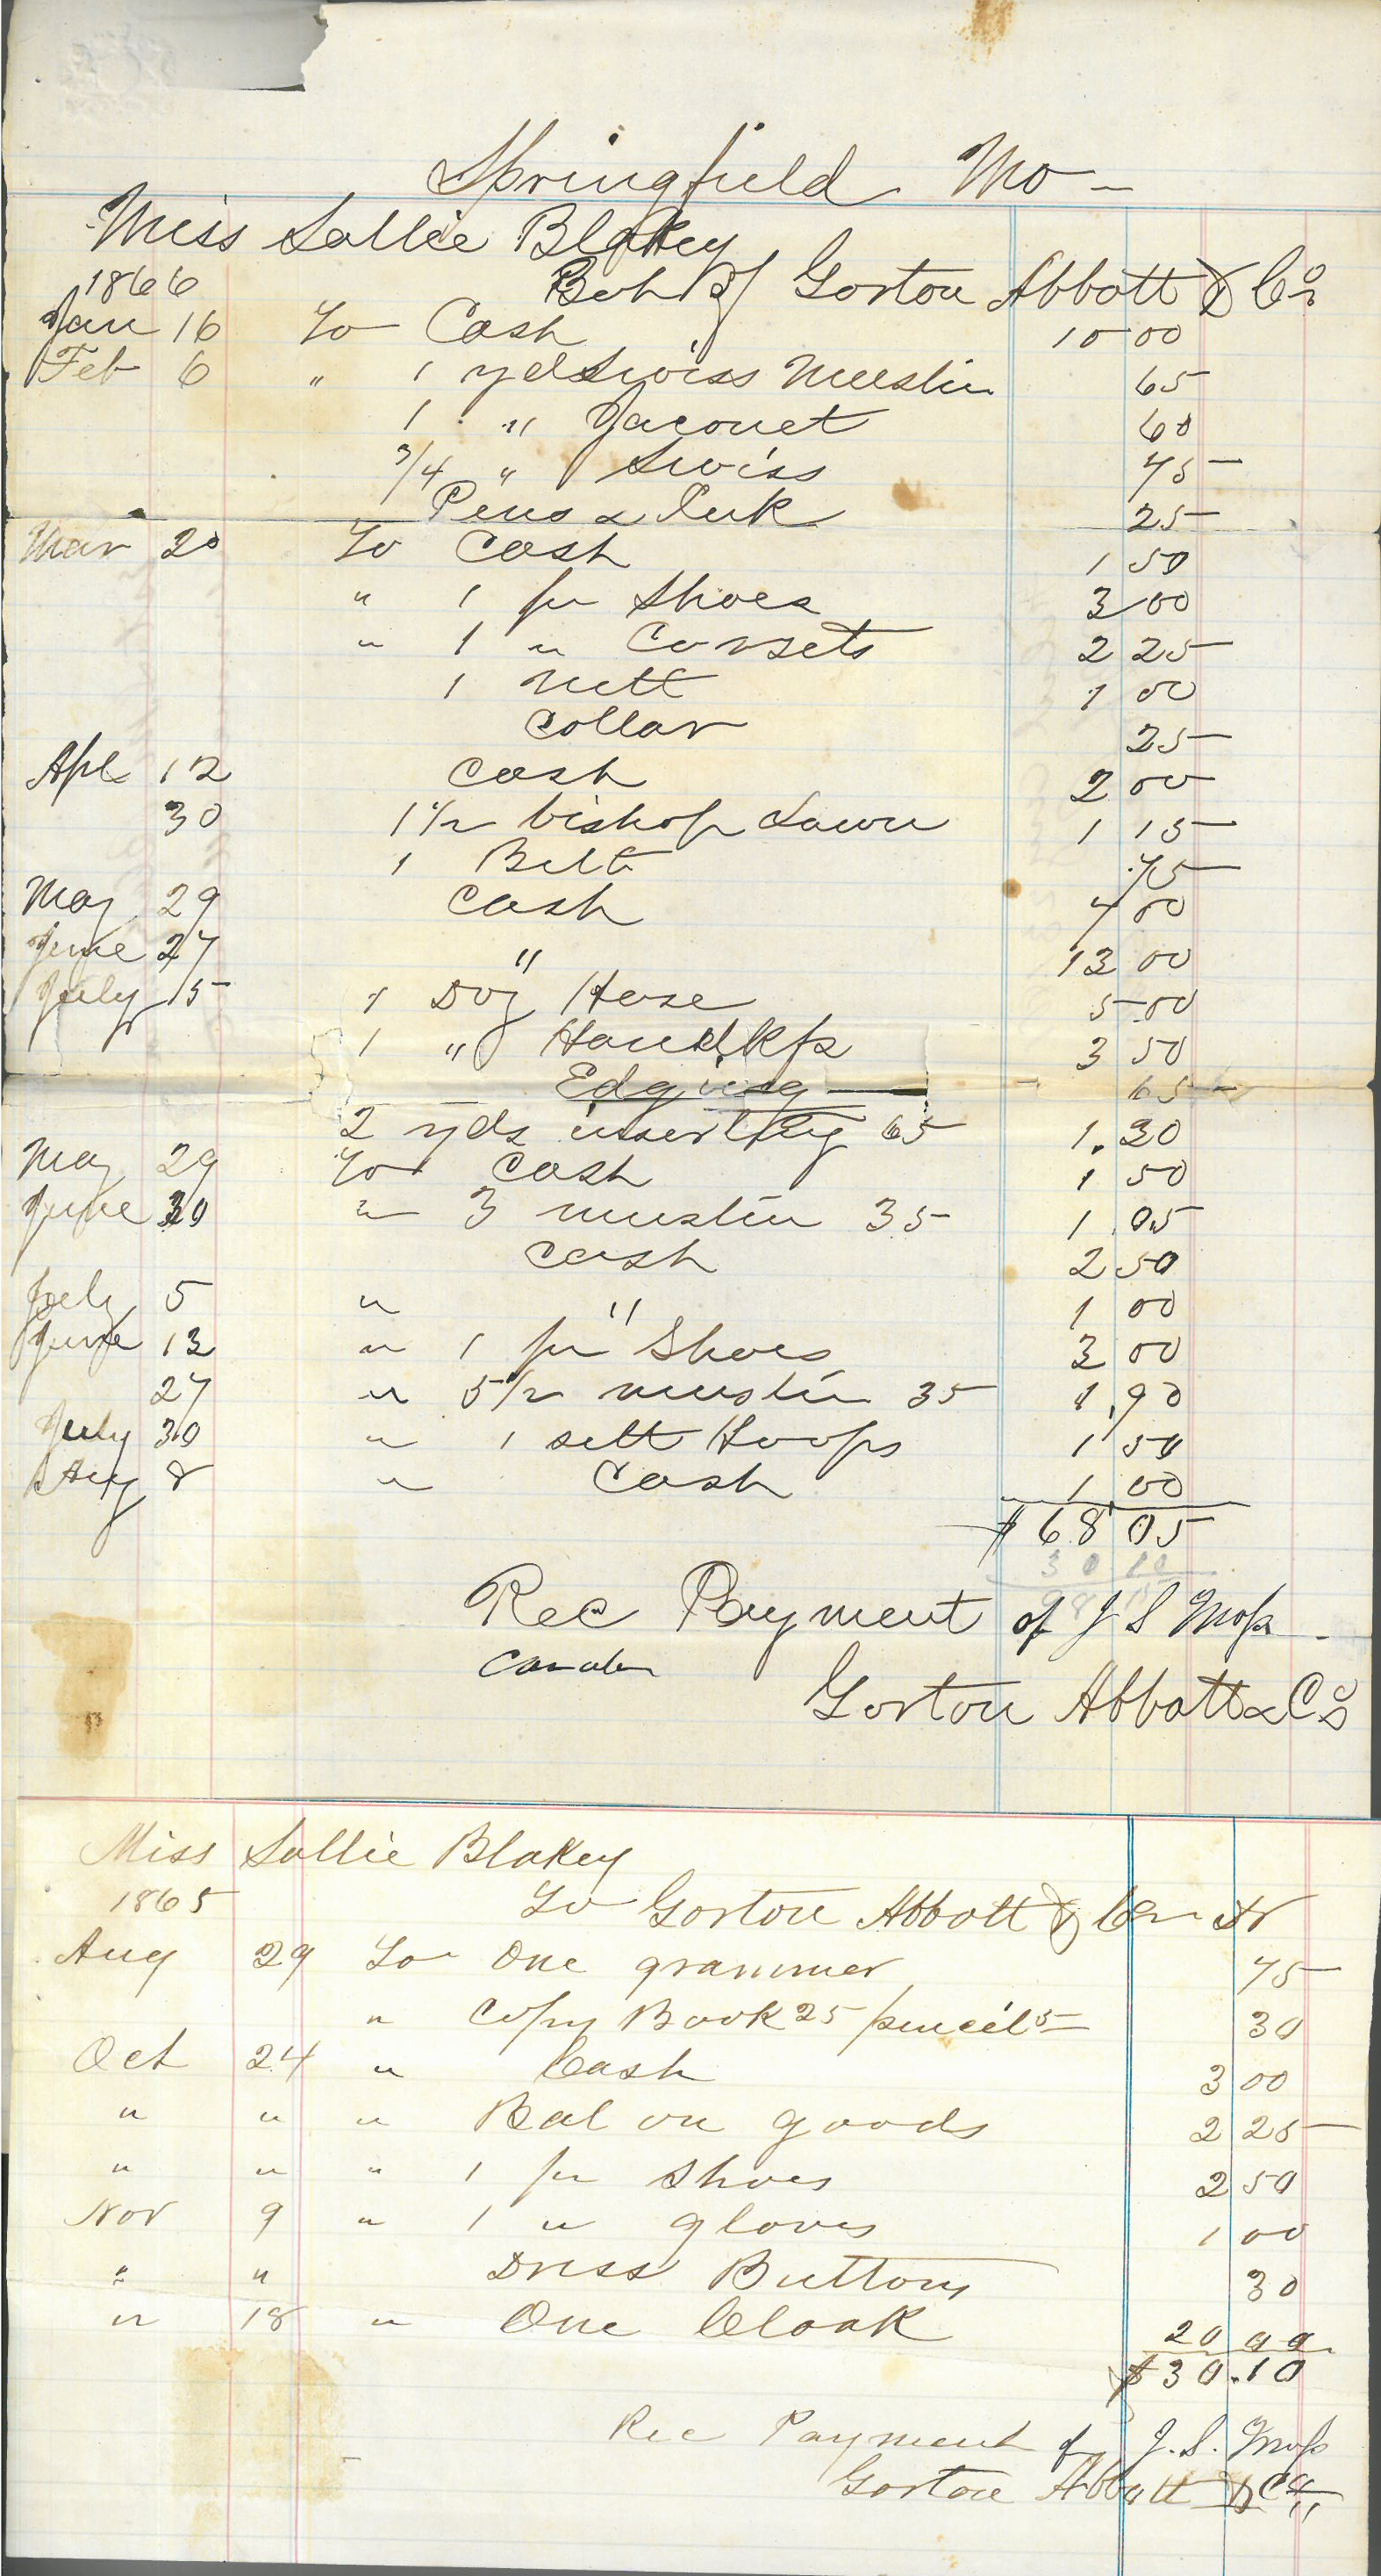 Springfield Mo —
Miss Sallie Blakey
1866 Bot of Gorton Abbott & Co
Jan 16 To Cash 10 00
Feb 6 " 1 yd Swiss Muslin 65
1 " Jaconet 60
3/4 " Swiss 75
Pens & Ink 25
Mar 20 To Cash 1 50
" 1 pr Shoes 3 00
" 1 " Corsets 2 25
1 Nett 1 00
Collar 25
Apl 12 Cash 2 00
30 1 1/2 bishop Lawn 1 15
1 Belt 75
May 29 Cash 4 00
June 27 " 13 00
July 15 1 Doz Hose 5 00
1 " Handkfs 3 50
Edging 65
2 yds inserting 65 1.30
May 29 To Cash 1 50
June 30 " 3 muslin 35 1.05
Cash 2 50
July 5 " " 1 00
June 13 " 1 pr Shoes 3 00
27 " 5 1/2 muslin 35 1.90
July 30 " 1 sett Hoops 1 50
Aug 8 " Cash 1 00
$68 05
30 10
98 15
Rec Payment of J S Moss
Gorton Abbott & Co
Miss Sallie Blakey
1865 To Gorton Abbott & Co Dr
Aug 29 To One grammer 75
" Copy Book 25 pencil 5 30
Oct 24 " Cash 3 00
" " " Bal on goods 2 25
" " " 1 pr Shoes 2 50
Nov 9 " 1 " gloves 1 00
" " Dress Buttons 30
" 18 " One Cloak 20 00
$30.10
Rec Payment of J. S. Moss
Gorton Abbott & Co